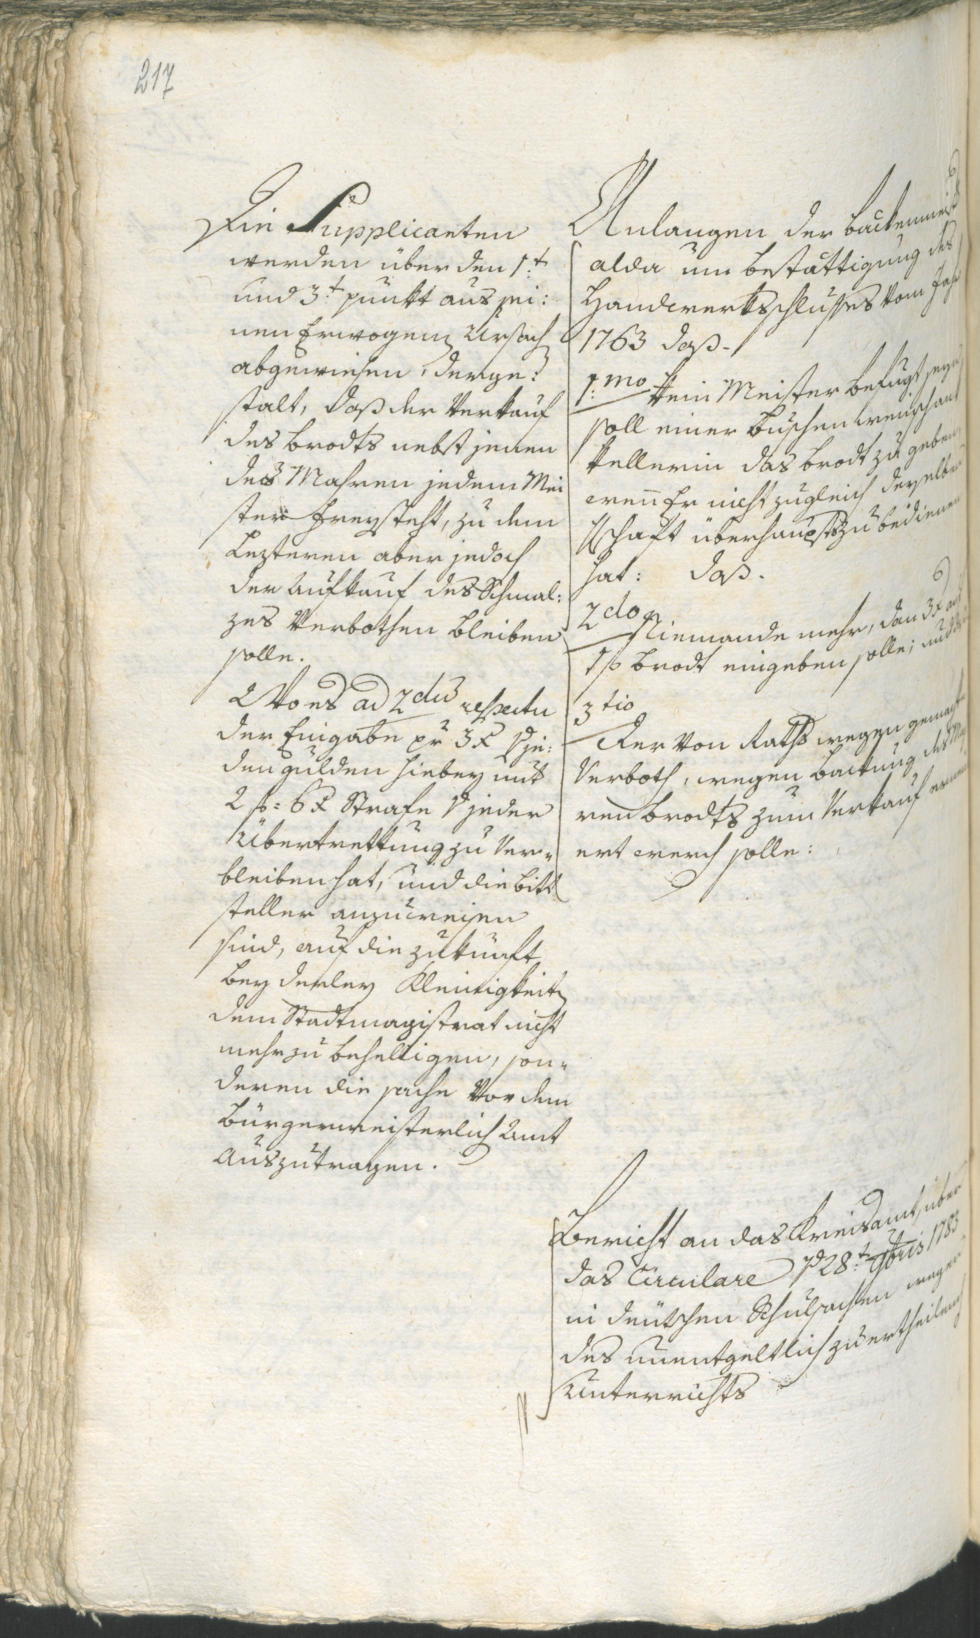 217
Die Supplicanten
werden über den 1t
und 3t. punkt aus sei:
nen Erwogenen Ursach
abgewiesen, derge:
stalt, daß der Verkauf
des brodts nebst jenen
des Mahren jedem Mei
ster freysteht, zu dem
Lezteren aber jedoch
der Aufkauf des Schmal:
zes Verbothen bleiben
solle.
Wo es ad 2dum respectu
der Eingabe pr 3 x je:
den gulden hiebey mit
2 f: 6 x Strafe jeder
Übertrettung zu Ver-
bleiben hat, und die bitt
steller anzuweisen
sind, auf die zukunft
bey derley Kleinigkeiten
dem Stadtmagistrat nicht
mehr zu behelligen, son-
deren die sache Vor dem
bürgermeisterlich Amt
Auszutragen.
Anlangen der backenmeist
alda um bestättigung des
Handwerkschlusses vom Jahr
1763 daß.
1mo. Kein Meister befugt seyn
soll einer buschenweinschant
kellerin das brodt zu geben
wenn Er nicht zugleich derselben
schaft überhaupts zu bedienen
hat: daß.
2do Niemande mehr, dan 3 x auf
1 f brodt eingeben solle; und
3tio
Der von Raths wegen gemacht
Verboth, wegen backung des
ren brodts zum Verkauf
ert werd solle:
Bericht an das Kreisamt, über
das Circulare 28t 1783
in deutschen Schulsachen wegen
des unentgeltlich zu ertheilend
Unterrichts